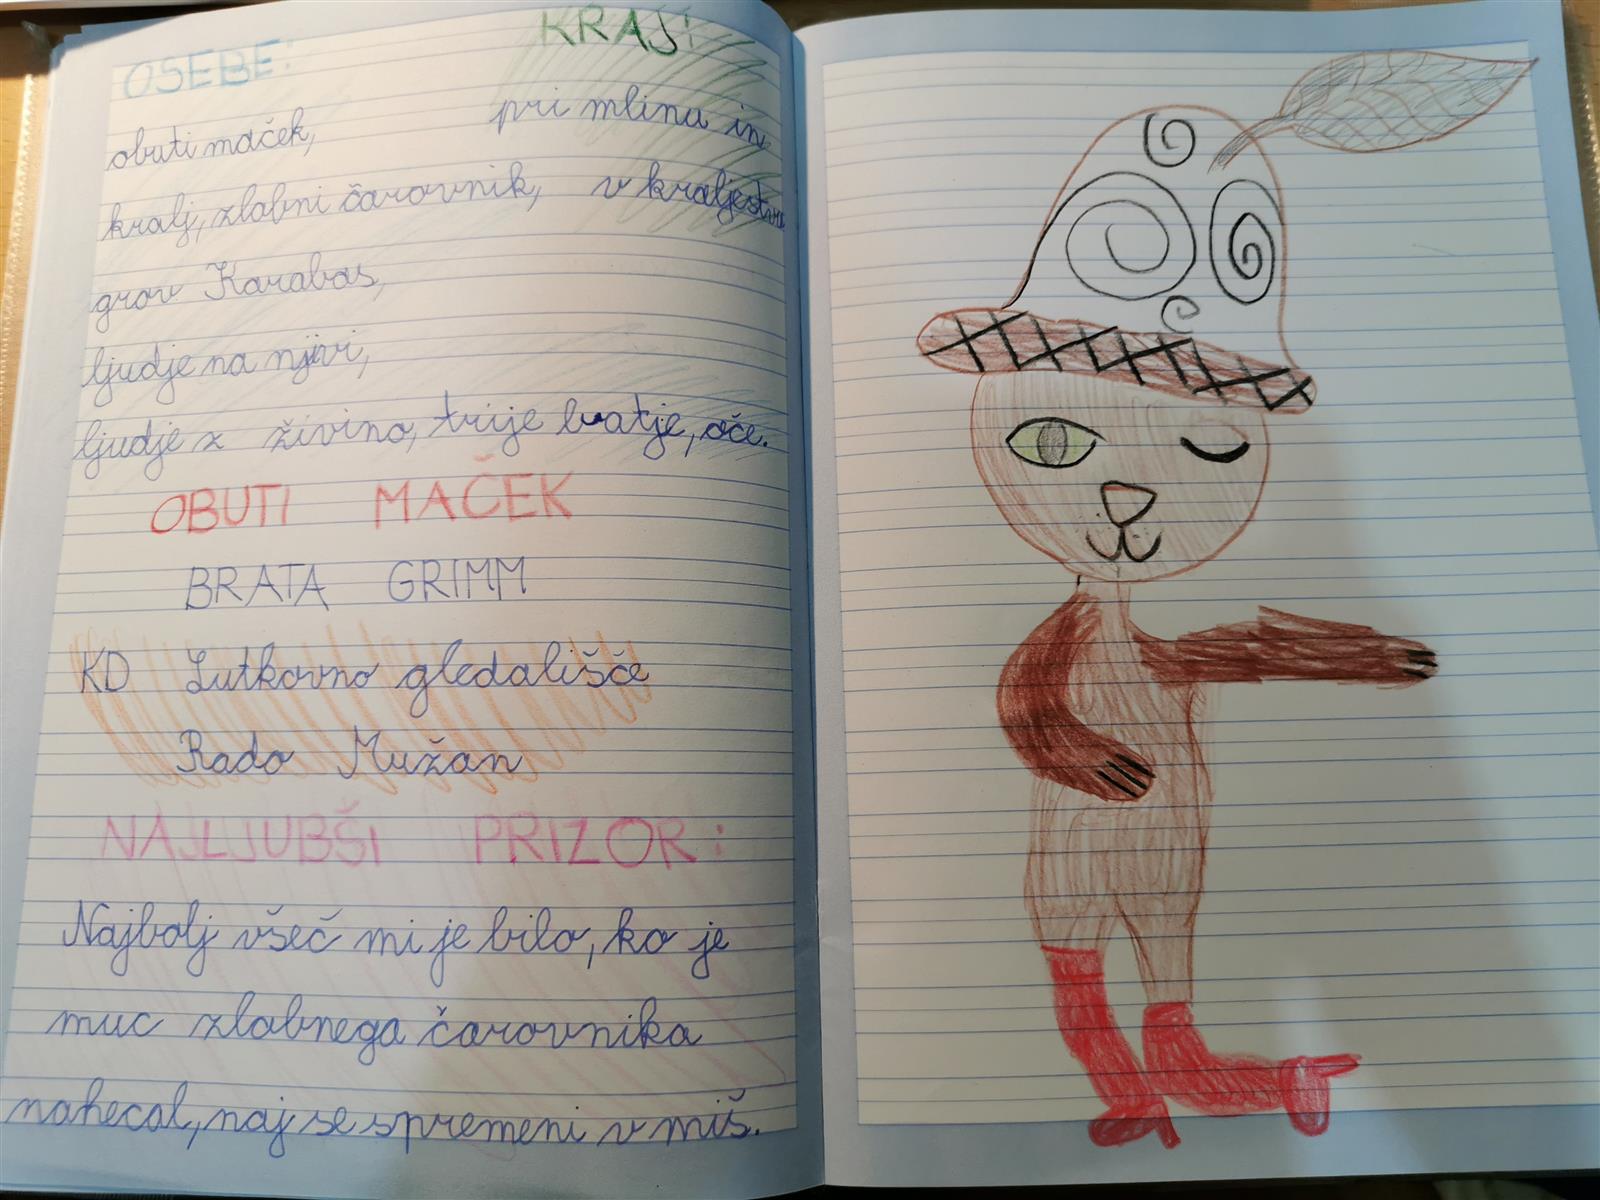 OSEBE: KRAJ:
obuti maček, pri mlinu in
kralj, zlobni čarovnik, v kraljestvu
grov Karabas,
ljudje na njivi,
ljudje z živino, trije bratje, oče.
OBUTI MAČEK
BRATA GRIMM
KD Lutkovno gledališče
Rado Mužan
NAJLJUBŠI PRIZOR:
Najbolj všeč mi je bilo, ko je
muc zlobnega čarovnika
nahecal, naj se spremeni v miš.